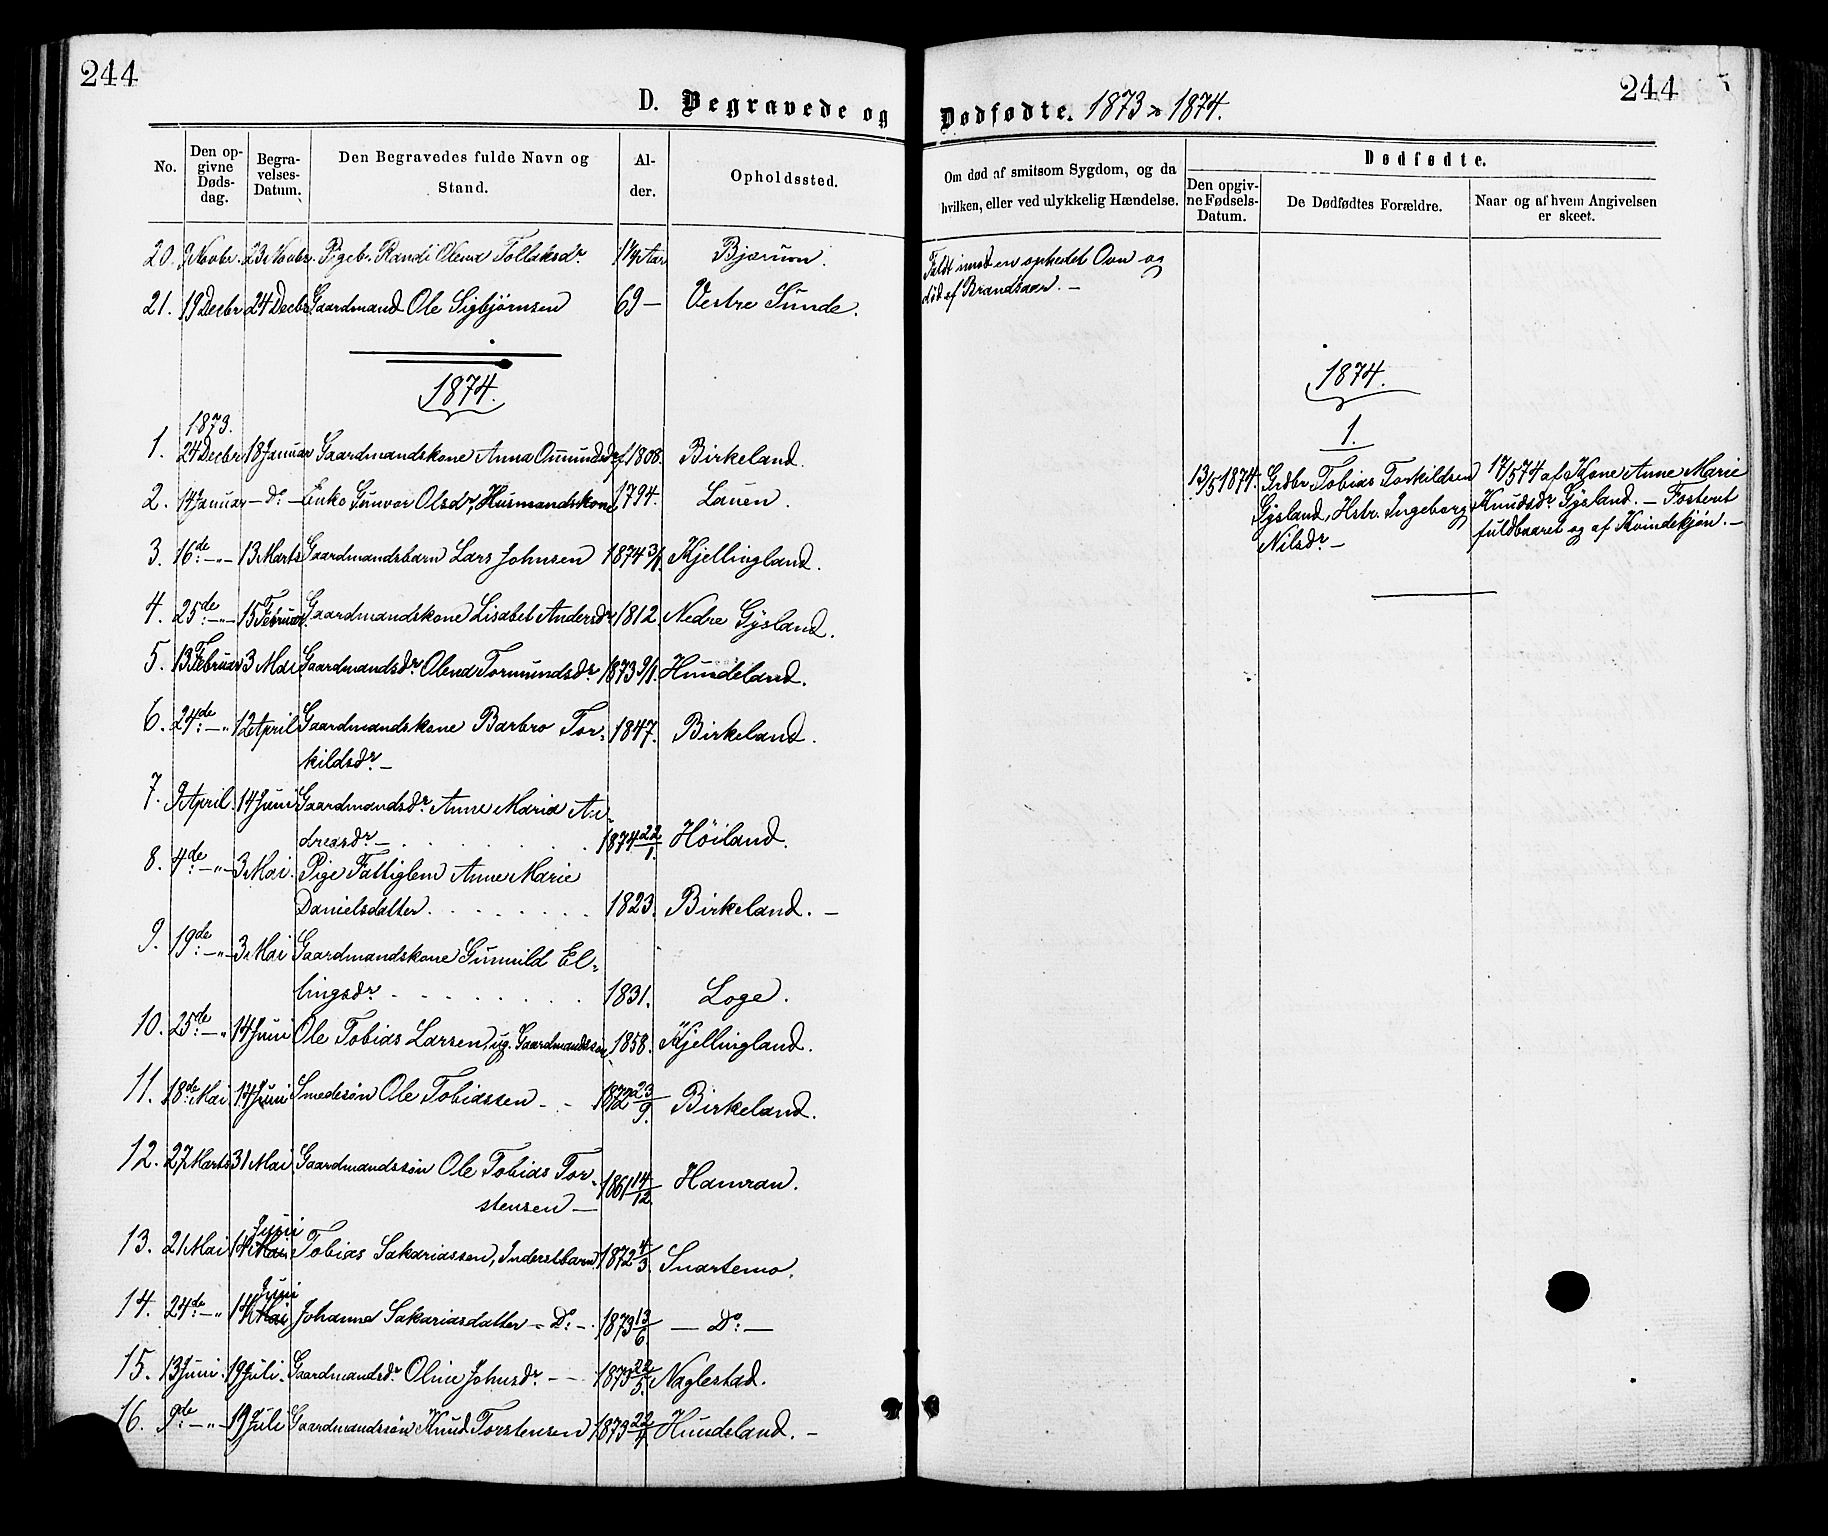 244
D. Begravede og
No.
Den opgivne Dødsdag.
Begravelses-Datum.
Den Begravedes fulde Navn og Stand.
Alder.
Opholdssted.
20. 9 Novbr. 23 Novbr. Pigeb. Randi Olena Tollaksdr. 1 1/4 Aar Bjærum.
21. 19 Decbr 24 Decbr Gaardmand Ole Sigbjørnsen 69 — Vestre Sunde.
1874.
1873.
1. 24 Decbr 18 Januar Gaardmandskone Anna Omundsdr. 1808. Birkeland.
2. 14 Januar — Do — Enke Gunvor Olsdr, Husmandskone, 1794. Lauen.
3. 16de — " — 13 Marts Gaardmandsbarn Lars Johnsen 1874 3/1. Kjellingland.
4. 25de — " — 15 Februar. Gaardmandskone Lisabet Andersdr 1812. Nedre Gÿsland.
5. 13 Februar 3 Mai Gaardmandsdr. Olena Tormundsdr. 1873 9/1. Hundeland.
6. 24de — " 12 April Gaardmandskone Barbro Tor-
kildsdr. — 1847. Birkeland.
7. 9 April. 14 Juni Gaardmandsdr. Anne Maria An-
dreasdr. — 1874 22/1. Höiland.
8. 4de — " — 3 Mai. Pige Fattiglem Anne Marie
Danielsdatter. 1823. Birkeland. —
9. 19de — " — 3 Mai Gaardmandskone Gunnild El-
lingsdr. 1831. Loge.
10. 25de — " 14 Juni Ole Tobias Larsen, ug. Gaardmandssøn, 1858. Kjellingland.
11. 18de Mai 14 Juni Smedesøn Ole Tobiassen - - 1872 23/9. Birkeland.
12. 27 Marts 31 Mai Gaardmandssøn Ole Tobias Tor-
stensen — 1861 14/12. Hamran.
Juni
13. 21 Mai 14 Mai Tobias Sakariassen, Inderstbarn, 1872 4/3. Snartemo.
Juni
14. 24de — " 14 Mai Johanna Sakariasdatter — Do: — 1873 13/6. — Do: —
15. 13 Juni. 19 Juli. Gaardmandsdr. Oline Johnsdr. — 1873 22/5. Naglestad.
16. 9de — " — 19 Juli Gaardmandssøn Knud Torstensen 1873 22/4 Hundeland. —
Dødfødte. 1873 & 1874.
244
Om død af smitsom Sygdom, og da
hvilken, eller ved ulykkelig Hændelse.
Dødfødte.
Den opgivne Fødsels-Datum.
De Dødfødtes Forældre.
Naar og af hvem Angivelsen er skeet.
Faldt imod en ophedet Ovn og
død af Brandsaar. —
1874.
1.
13/5 1874. Grdbr Tobias Torkildsen
Gÿsland, Hstr. Ingeborg
Nilsdr. —
17/5 74 af Kone Anne Marie
Knudsdr. Gÿsland. — Fosteret
fuldbaaret og af Kvindekjøn. —